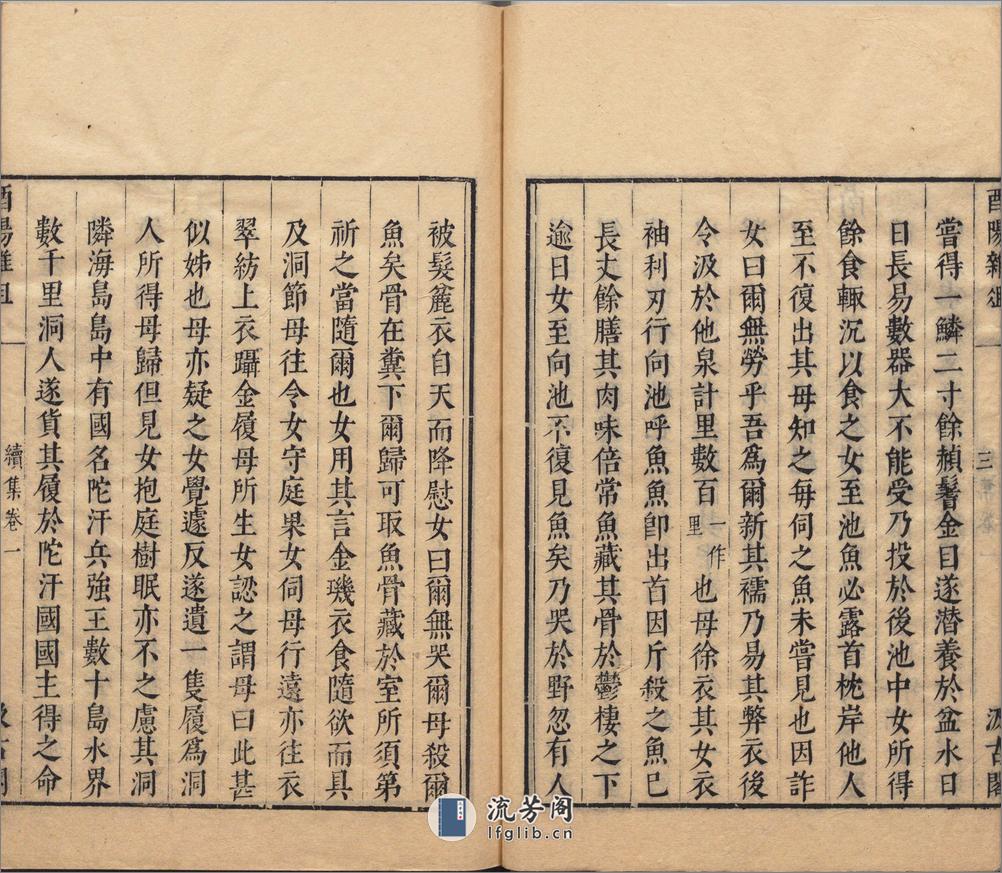 酉陽雜俎
三
汲古閣
嘗得一鱗二寸餘赬鬐金目遂潜養於盆水日
日長易數器大不能受乃投於後池中女所得
餘食輙沉以食之女至池魚必露首枕岸他人
至不復出其母知之每伺之魚未嘗見也因詐
女曰爾無勞乎吾爲爾新其襦乃易其弊衣後
令汲於他泉計里數百一作里也母徐衣其女衣
袖利刃行向池呼魚魚卽出首因斤殺之魚巳
長丈餘膳其肉味倍常魚藏其骨於鬱棲之下
逾日女至向池不復見魚矣乃哭於野忽有人
被髮麄衣自天而降慰女曰爾無哭爾母殺爾
魚矣骨在糞下爾歸可取魚骨藏於室所須第
祈之當隨爾也女用其言金璣衣食隨欲而具
及洞節母往令女守庭果女伺母行遠亦往衣
翠紡上衣躡金履母所生女認之謂母曰此甚
似姊也母亦疑之女覺遽反遂遺一隻履爲洞
人所得母歸但見女抱庭樹眠亦不之慮其洞
隣海島島中有國名陀汗兵強王數十島水界
數千里洞人遂貨其履於陀汗國國主得之命
酉陽雜俎
續集卷一
汲古閣
流芳阁
lfglib.cn